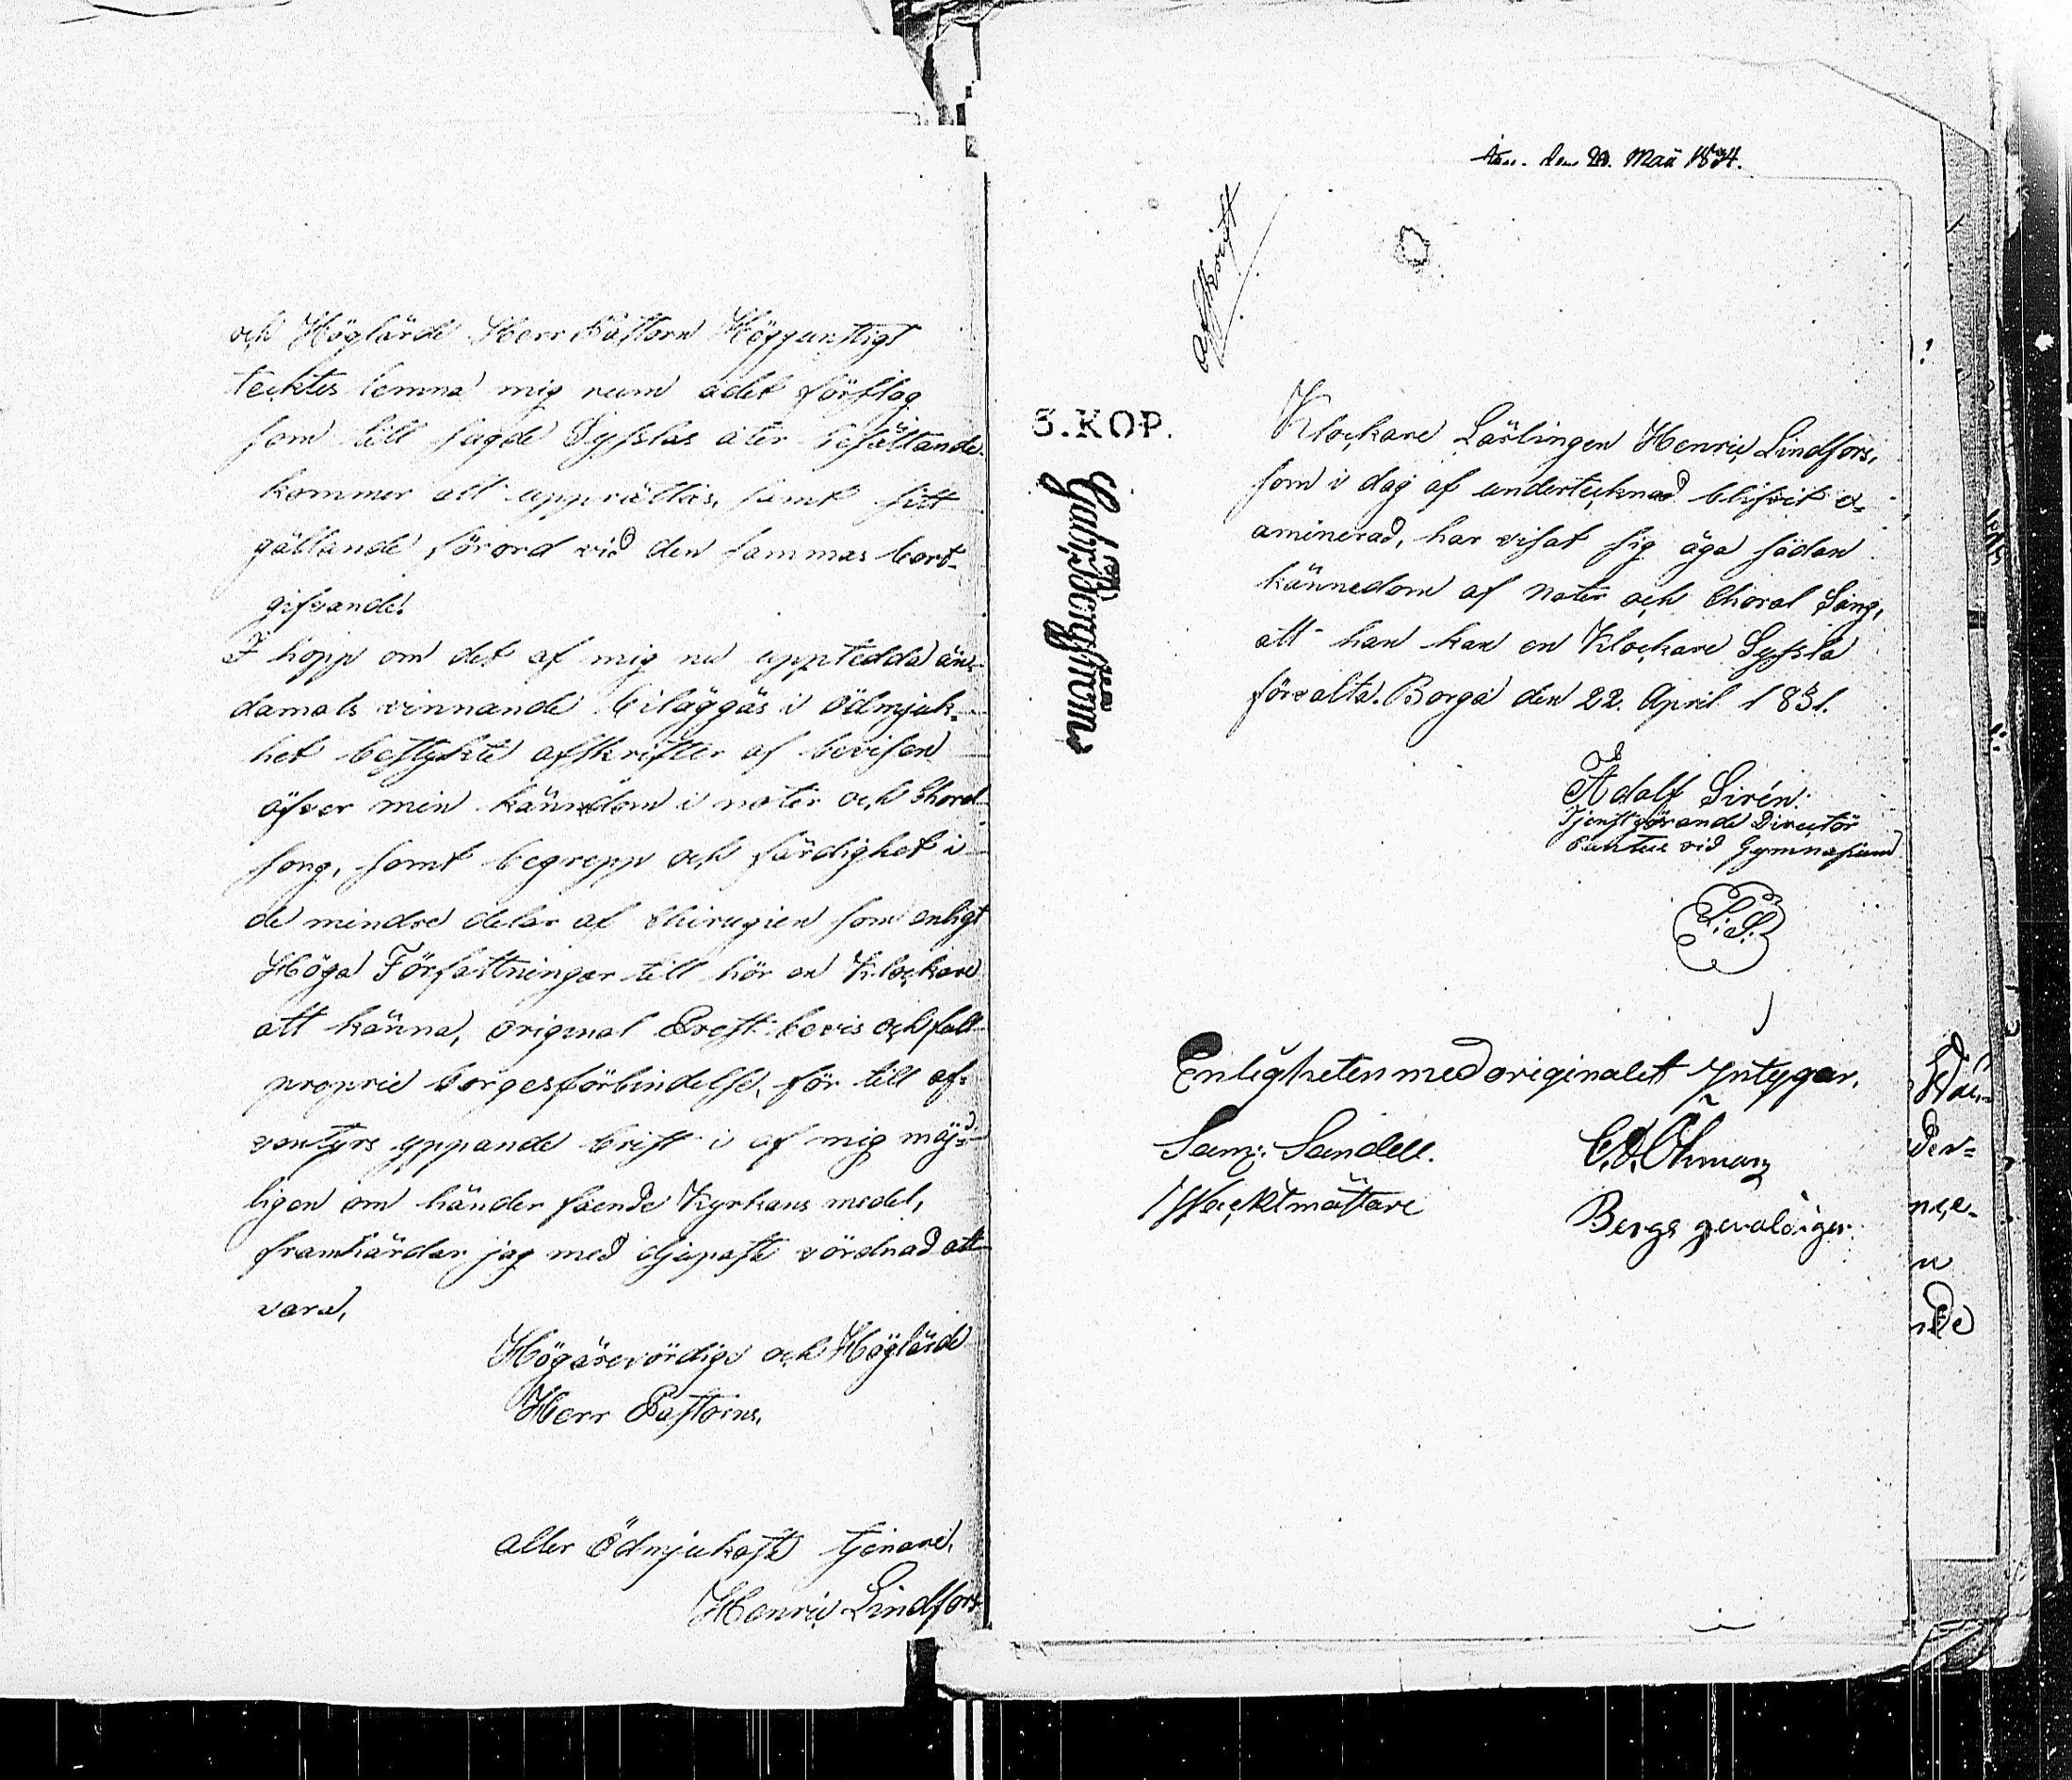 och Höglärde Herr Pastorn Höggunstigt
tecktes lemna mig rum å det förslag
som till sagde Sysslas åter besättande
kommer att upprättas, samt sitt
gällande förord vid den sammas bort-
gifvande.
I hopp om det af mig nu upptedda än-
damåls vinnande biläggas i ödmjuk-
het bestyrkte afskrifter af bevisen
öfver min kännedom i noter och Choral
song, samt begrepp och färdighet i
de mindre delar af Chirugien som enligt
Höga Författningar till hör en Klockare
att känna, original Prest bevis och full
proprie borgesförbindelse, för till äf-
ventyrs yppande brist i af mig möj-
ligen om händer faende Kyrkans medel,
framhärdar jag med djupaste vördnad att
vara,
Högärevördige och Höglärde
Herr Pastorns,
aller Ödmjukaste tjenare,
Henric Lindfors
den 20. Maii 1834.
Afskrift
3. KOP.
Klockare Lärlingen Henric Lindfors,
som i dag af undertecknad blifvit ex-
aminerad, har visat sig äga sådan
kännedom af Noter och Choral Sång,
att han kan en Klockare Syssla
förvalta. Borgå den 22. April 1831.
Adolf Sirén.
Tjenstgörande Director
Cantus vid Gymnasium
L. S.
Enligheten med originalet Intygar.
Sam: Sandell. C. D. Öhman
Wacktmästare Bergs gevaldiger.